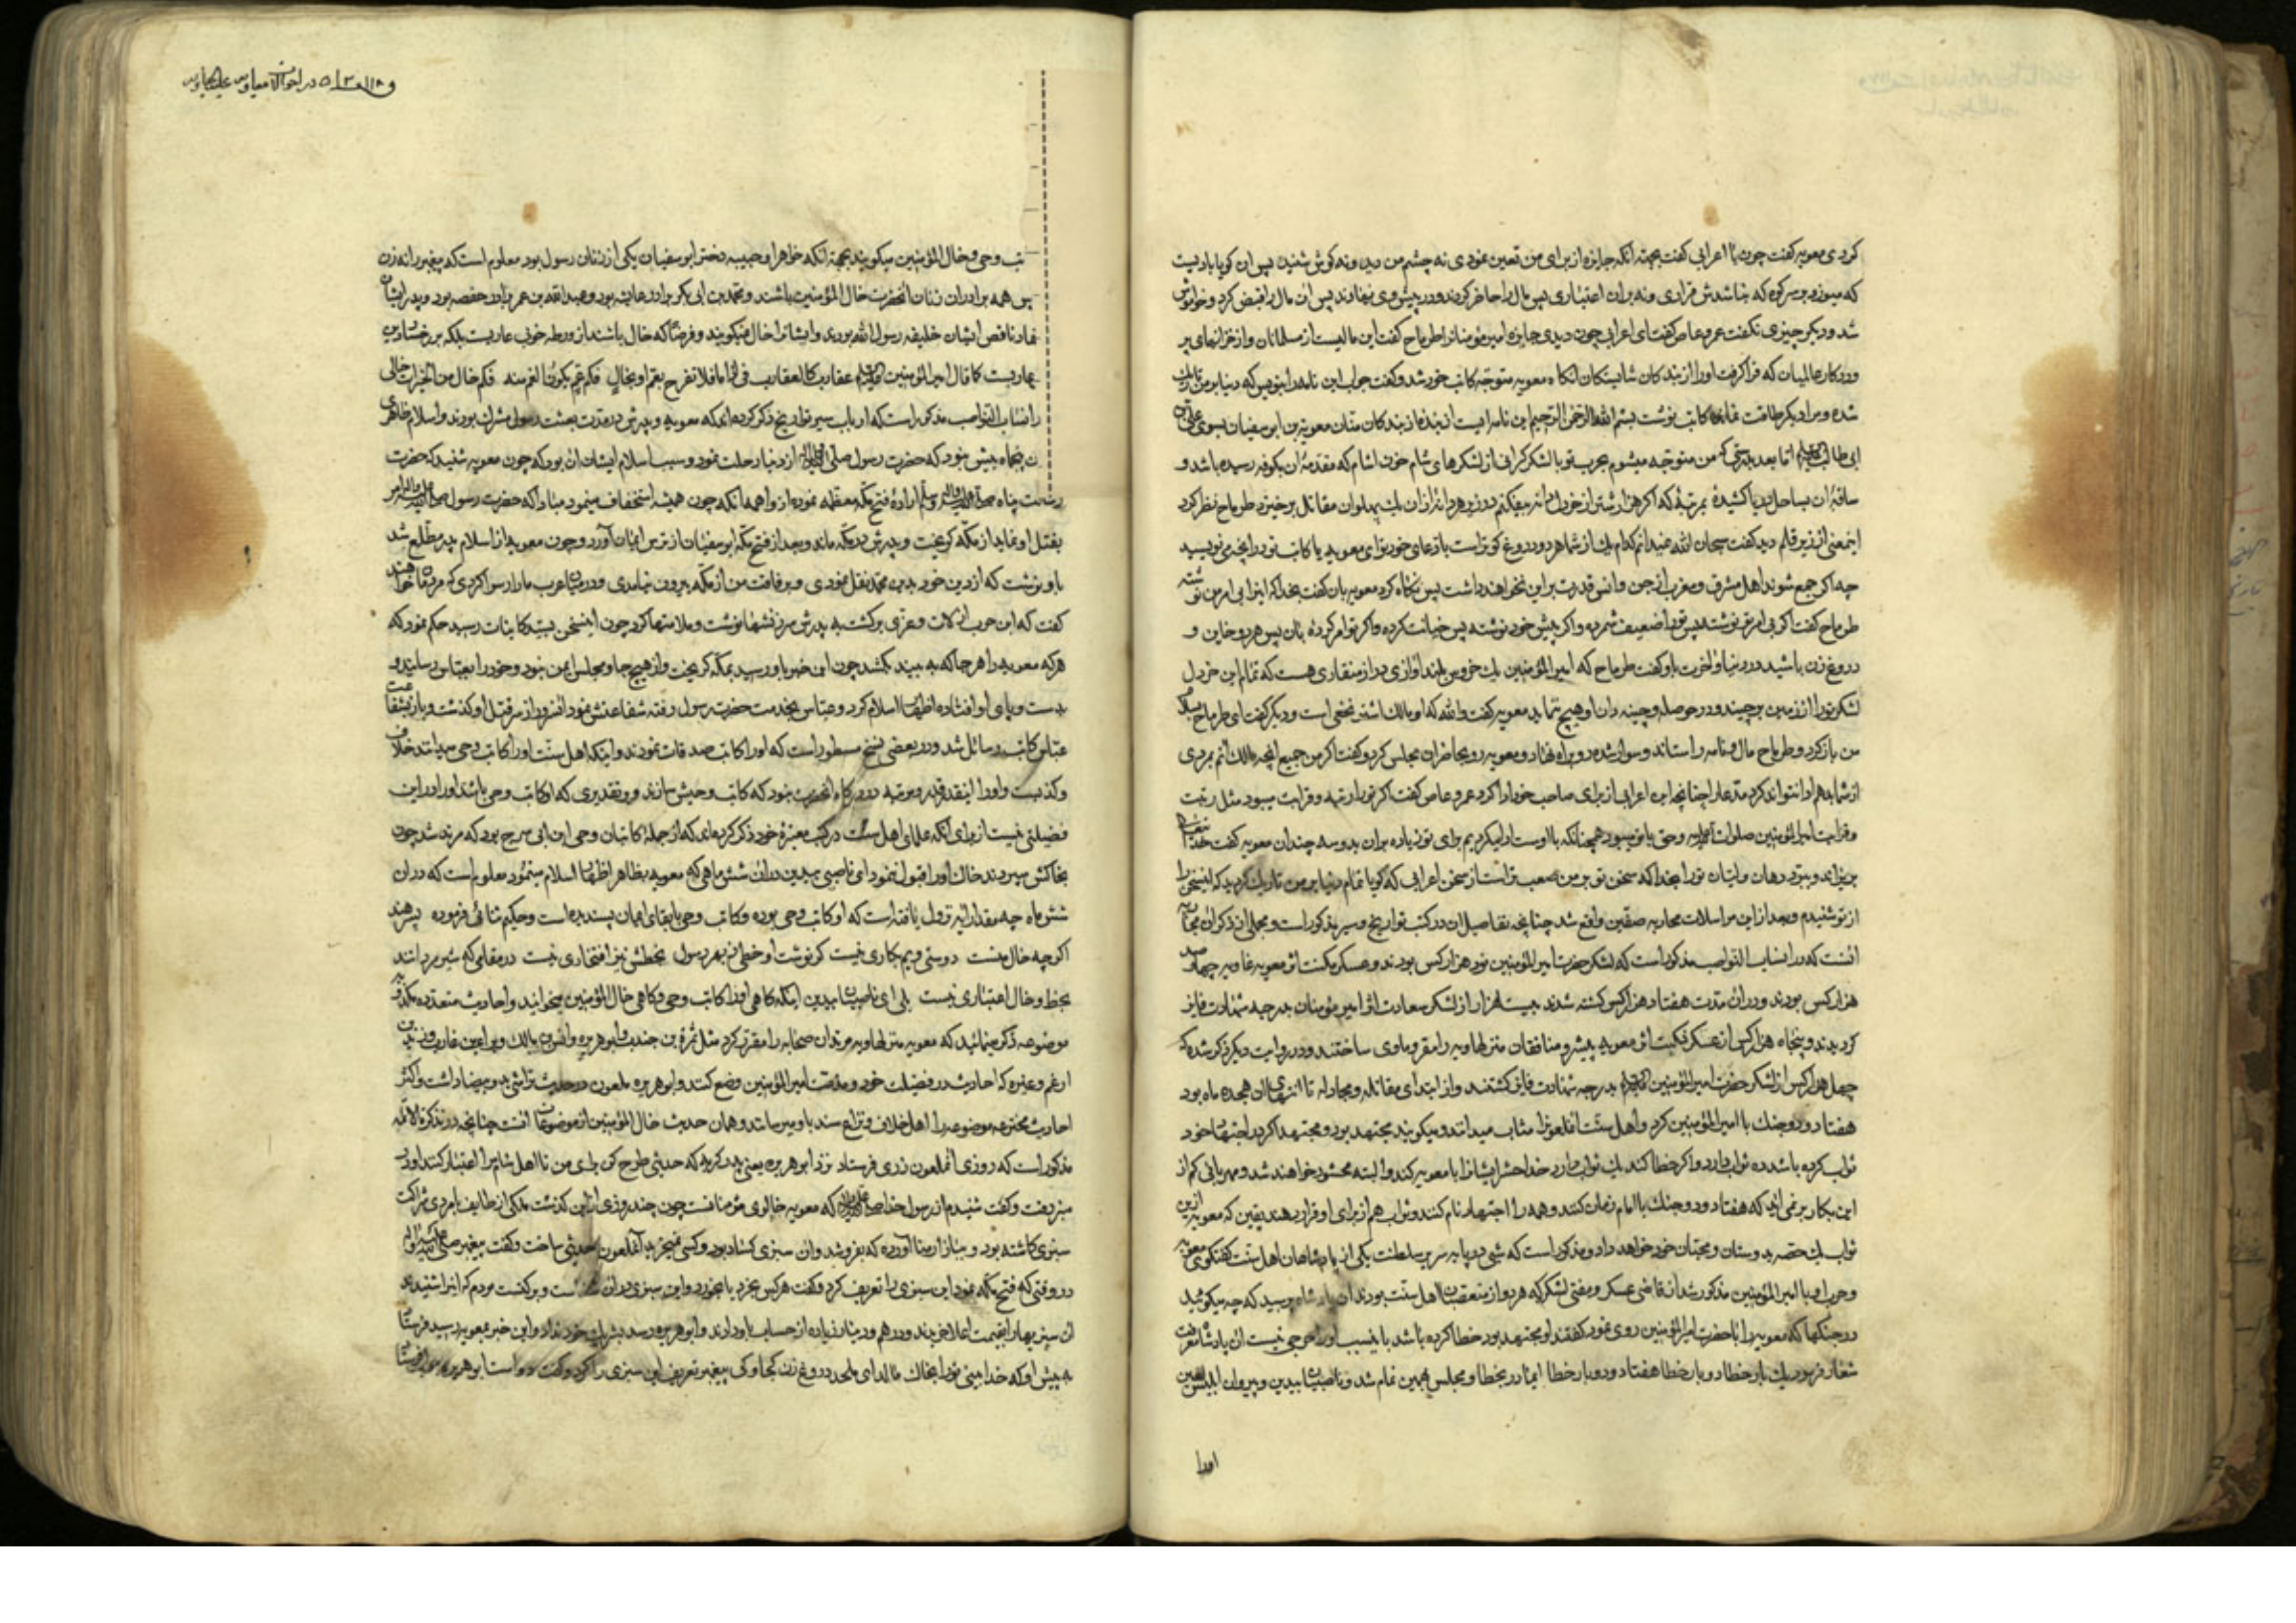 کردی معویه کفت چون یا اعرابی کفت بجهة انکه جایزه از برای من تعین نمودی نه چشم من دید ونه کوش شنید پس ان کویا بادیست
که میوزد بر سر کوه که نباشدش قراری ونه بران اعتباری پس مال را حاضر کردند ودر پیش وی نهادند پس ان مال را قبض کرد وخواموش
شد ودیکر چیزی نکفت عمرو عاص کفت ای اعرابی چون دیدی جایزه امیر مؤمنانرا طرماح کفت این مالیست از مسلمانان واز خزانهای پر
وردکار عالمیان که فرا کرفت اورا از بندکان شایستکان انکاه معویه متوجه کاتب خود شد وکفت جواب این نامه را بنویس که دنیا بر من تاریک
شده ومرا دیکر طاقت نمانده کاتب نوشت بسم الله الرحمن الرحیم این نامه ایست از بنده از بندکان منان معویة بن ابو سفیان بسوی علی بن
ابی طالب اما بعد بدرستی که من متوجه میشوم بحرب تو با لشکر کرانی از لشکرهای شام خون اشام که مقدمهٔ ان بکوفه رسیده باشد و
ساقهٔ ان بساحل دریا کشیدهٔ بمرتبهٔ که اکر هزار شتر از خردل دانه بیفکنم در زیر هر دانهٔ از ان یک پهلوان مقاتل برخیزد طرماح نظر کرد
اینمعنی از زیر قلم دید کفت سبحان الله نمیدانم کدام یک از شما هر دو دروغ کوتر است بازعای خود تو ای معویه یا کاتب تو در انچه می نویسد
چه اکر جمع شوند اهل مشرق ومغرب از جن وانس قدرت بر این نخواهند داشت پس نکاه کرد معویه بان کفت بخدا که اینرا بی امر من نوشته
طرماح کفت اکر بی امر تو نوشته پس تورا ضعیف شمرده واکر پیش خود نوشته پس خیانت کرده واکر تو امر کردهٔ بان پس هر دو خاین و
دروغ زن باشید در دنیا واخرت باو کفت طرماح که امیر المؤمنین یک خروس بلند اوازی دراز منقاری هست که تمام این خردل
لشکر تورا از زمین برچیند ودر حوصله وچینه دان او هیچ ننماید معویه کفت والله که او مالک اشتر نخعی است ودیکر کفت ای طرماح
من باز کرد وطرماح مال ونامه را ستاند وسوار شده رو براه نهاد ومعویه رو بحاضران مجلس کرد وکفت اکر من جمیع انچه مالک انم بمردی
از شما بدهم اوا نتواند کرد مدعا را چنانچه این اعرابی از برای صاحب خود ادا کرد عمرو عاص کفت اکر تورا رتبه وقرابت میبود مثل رتبت
وقرابت امیر المؤمنین صلوات الله علیه وحق با تو میبود همچنانکه با اوست ادا میکردیم برای تو زیاده بران بدو سه چندان معویه کفت خدا
بریزاند وببرد دهان ولبان تورا بخدا که سخن تو بر من صعب تر است از سخن اعرابی که کویا تمام دنیا بر من تاریک کردید که اینسخن را
از تو شنیدم وبعد از این مراسلات محاربه صفین واقع شد چنانچه تفاصیل ان در کتب تواریخ وسیر مذکور است ومجملی از ذکر ان
انست که در انساب النواصب مذکور است که لشکر حضرت امیر المؤمنین نود هزار کس بودند وعسکر نکبت اثر معویه غاویه
هزار کس بودند ودر ان مدت هفتاد هزار کس کشته شدند بیست هزار از لشکر سعادت اثر امیر مؤمنان بدرجه شهادت فایز
کردیدند وپنجاه هزار کس از عسکر نکبت اثر معویه پیشرو منافقان منزلهاویه را مقر وماوی ساختند ودر روایت دیکر ذکر شده که
چهل هزار کس از لشکر حضرت امیر المؤمنین بدرجه شهادت فایز کشتند واز ابتدای مقاتله ومجادله تا انتهای ان هجده ماه بود
هفتاد ودو جنک با امیر المؤمنین کرد واهل سنت انملعونرا مثاب میدانند ومیکویند مجتهد بود ومجتهد اکر در اجتهاد خود
ثواب کرده باشد ده ثواب دارد واکر خطا کند یک ثواب دارد خدا حشر ایشانرا با معویه کند والبته محشور خواهند شد ومهربانی کم از
این بکار بر نمی اید که هفتاد ودو جنک با امام زمان کنند وهمه را اجتهاد نام کنند وثواب هم از برای او قرار دهند یقین که معویه از این
ثواب یک حصه بدوستان ومحبان خود خواهد داد ومذکور است که شبی در پایه سریر سلطنت یکی از پادشاهان اهل سنت کفتکوی معویه
وحرب او با امیر المؤمنین مذکور شد از قاضی عسکر ومفتی لشکر که هر دو از متعصبان اهل سنت بودند ان پادشاه پرسید که چه میکوئید
در جنکها که معویه را با حضرت امیر المؤمنین روی نمود کفتند او مجتهد بود خطا کرده باشد باینسبب اورا حرجی نیست ان پادشاه
شعار فرمود یک بار خطا دو بار خطا هفتاد ودو بار خطا ایما در بخطا ومجلس بهمین تمام شد وناصبیان بیدین وپیروان ابلیس لعین
اورا
در احوالات معاویه علیه الهاویه
تب وحی وخال المؤمنین میکویند بجهة انکه خواهر او حبیبه دختر ابو سفیان یکی از زنان رسول بود معلوم است که پیغمبر را نه زن
پس همه برادران زنان انحضرت خال المؤمنین باشند ومحمد بن ابی بکر برادر عایشه بود وعبد الله بن عمر برادر حفصه بود وپدر ایشان
ناقص ایشان خلیفه رسول الله بودند وایشانرا خال نمیکویند وفرضا که خال باشند از ورطه خوبی عاریست بلکه بر رخسار دین
عاریست کما قال امیر المؤمنین عقاربک العقارب فی فلا تفرح بعم او بخال فکم عم یکون الغم منه فکم خال من الخیرات خالی
در انساب النواصب مذکور است که ارباب سیر وتواریخ ذکر کرده اند که معویه وپدرش در مدت بعثت رسول مشرک بودند واسلام ظاهری
پنجماه بیش نبود که حضرت رسول از دنیا رحلت نمود وسبب اسلام ایشان ان بود که چون معویه شنید که حضرت
رسالت پناه صلی الله علیه واله وسلم ارادهٔ فتح مکه معظمه نموده از واهمه انکه چون همیشه استخفاف مینمود مبادا که حضرت رسول امر
بقتل او نماید از مکه کریخت وپدرش در مکه ماند وبعد از فتح مکه ابو سفیان از ترس ایمان آورد وچون معویه از اسلام پدر مطلع شد
باو نوشت که از دین خود بدین محمد نقل نمودی وبرفاقت من از مکه بیرون نیامدی ودر میان عرب مارا رسوا کردی که مردم ما خواهند
کفت که ابن حرب از لات وعزی برکشت به پدرش سرزنشها نوشت وملامتها کرد چون اینسخن بسید کاینات رسید حکم نمود که
هرکه معویه را هر جا که به بیند بکشد چون این خبر باو رسید بمکه کریخت واز هیچ جا ومجلس ایمن نبود وخود را بعباس رسانید و
بدست وپای او افتاده اظهار اسلام کرد وعباس بخدمت حضرت رسول رفته شفاعتش نمود انسرور از سر قتل او کذشت وباز بشفاعت
عباس کاتب رسائل شد ودر بعضی نسخ مسطور است که اورا کاتب صدقات نمودند واینکه اهل سنت اورا کاتب وحی میدانند خلاف
وکذبست واورا اینقدر قدر ومرتبه در درکاه انحضرت نبود که کاتب وحیش سازند وبر تقدیری که او کاتب وحی باشد اورا در این
فضیلتی نیست از برای انکه علمای اهل سنت در کتب معتبرهٔ خود ذکر کرده اند که از جملهٔ کاتبان وحی ابن ابی سرح بود که مرتد شد چون
بخاکش سپردند خاک اورا قبول ننمود ای ناصبی بیدین در ان شش ماهی که معویه بظاهر اظهار اسلام مینمود معلوم است که در ان
شش ماه چه مقدار ایه نزول یافته است که او کاتب وحی بوده وکاتب وحی بابقای ایمان پسندیده است وحکیم ثنائی فرموده پسر هند
اکرچه خال منست دوستی ویم بکاری نیست کر نوشت او خطی ز بهر رسول بخطش نیز افتخاری نیست در مقامی که شیر مردانند
بخط وخال اعتباری نیست بلی ای ناصبیان بیدین اینکه کاهی اورا کاتب وحی وکاهی خال المؤمنین میخوانید واحادیث متعدده
موضوعه ذکر مینمائید که معویه مرتدان صحابه را مقرر کرد مثل سمرة بن جندب وابو هریره وانس بن مالک وبراء بن عازب وزید بن
ارقم وغیره که احادیث در فضیلت خود ومذمت امیر المؤمنین وضع کنند وابو هریره ملعون در حدیث تراشی ید بیضا داشت واکثر
احادیث مخترعه موضوعه را اهل خلاف ونزاع سند باو میرسانند وهمان حدیث خال المؤمنین از موضوعات انست چنانچه در تذکرة الائمه
مذکور است که روزی انملعون زری فرستاد نزد ابو هریره یعنی پدر کربه که حدیثی طرح کن برای من تا اهل شام مرا اعتبار کنند او بر
منبر رفت وکفت شنیدم از رسول خدا که معویه خالوی مؤمنانست چون چند روزی از این کذشت ملکی از طایف بامردی شراکت
سبزی کاشته بود وببازار منا آورده که بفروشد وان سبزی کساد بود وکسی نمیخرید انملعون حدیثی ساخت وکفت پیغمبر
در وقتی که فتح مکه نمود این سبزی را تعریف کرد وکفت هرکس بخرد یا بخورد واین سبزی در ان وبرکشت مردم که اینرا شنیدند
ان سبزیها را بقیمت اعلا خریدند ودرهم ودینار زیاده از حساب باو دادند وابو هریره رسد بشریک خود نداد واین خبر بمعویه رسید فرستاد
به پیش او که خدا بینی تورا بخاک مالد ای ملحد دروغ زن کجا وکی پیغمبر تعریف این سبزی را کرد وکفت دواست ابو هریره